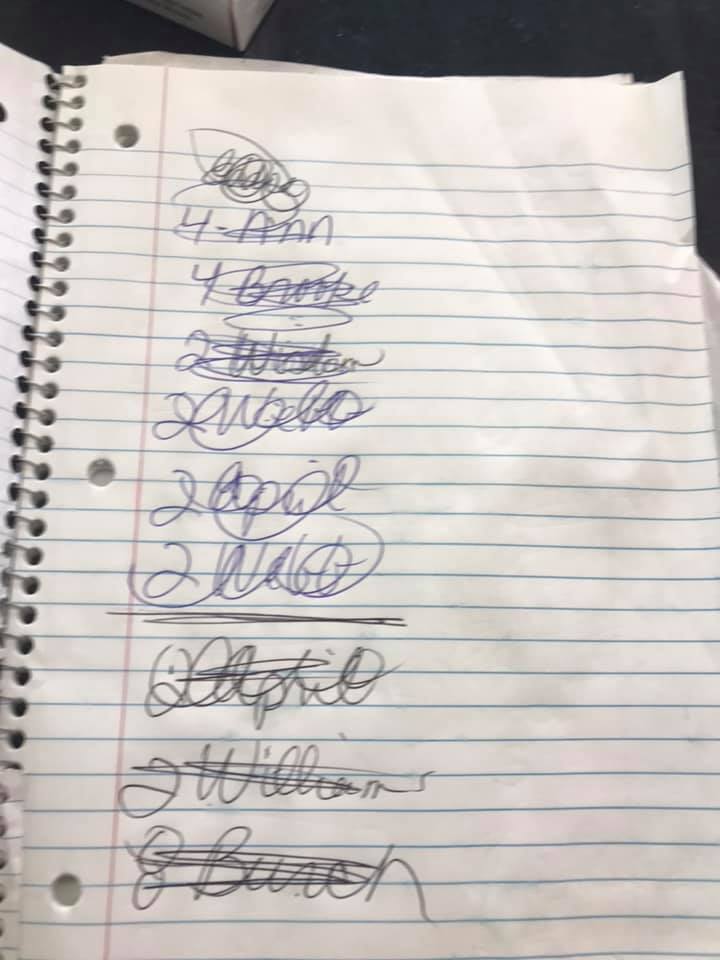 4-Ann
4 Brooke
2 Wisdom
2
2 April
2
2 April
2 Williams
8 Burch